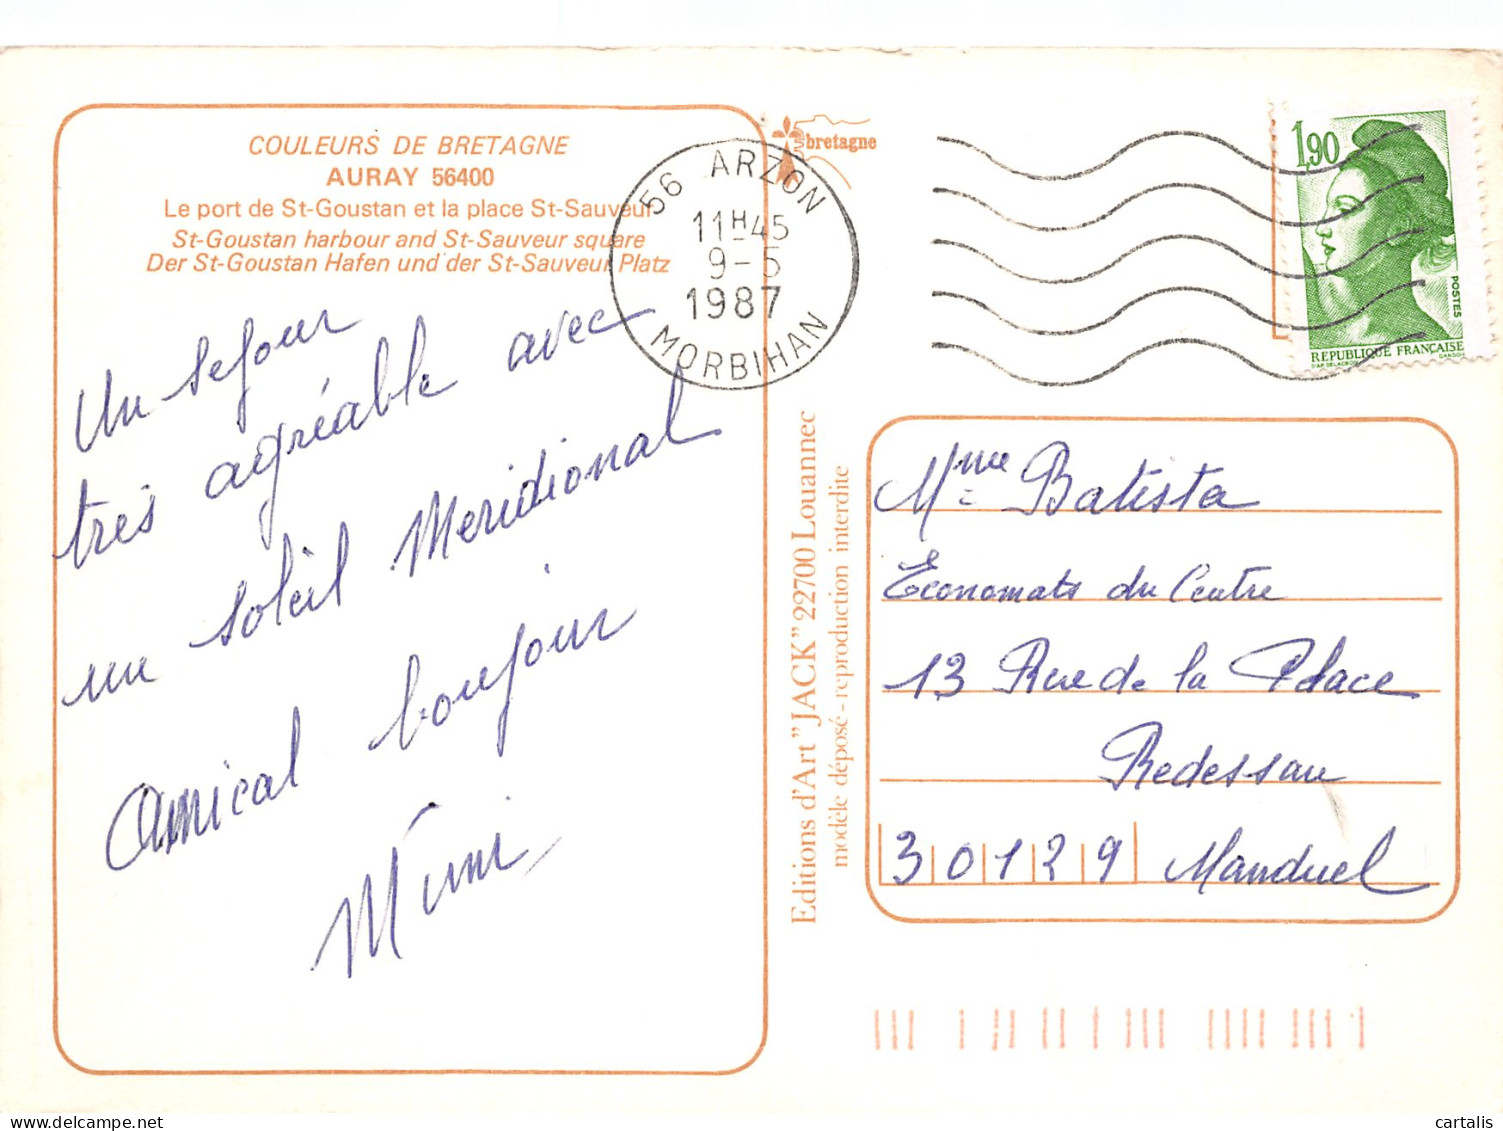 COULEURS DE BRETAGNE
AURAY 56400
Le port de St-Goustan et la place St-Sauveur
St-Goustan harbour and St-Sauveur square
Der St-Goustan Hafen und der St-Sauveur Platz
Un sejour
très agréable avec
un soleil Meridional
Amical bonjour
Mimi
bretagne
56 ARZON
11H45
9-5
1987
MORBIHAN
1,90
POSTES
REPUBLIQUE FRANÇAISE
Editions d'Art "JACK" 22700 Louannec
modèle déposé - reproduction interdite
Mme Batista
Economats du Centre
13 Rue de la Place
Redessan
30129 Manduel
cartalis